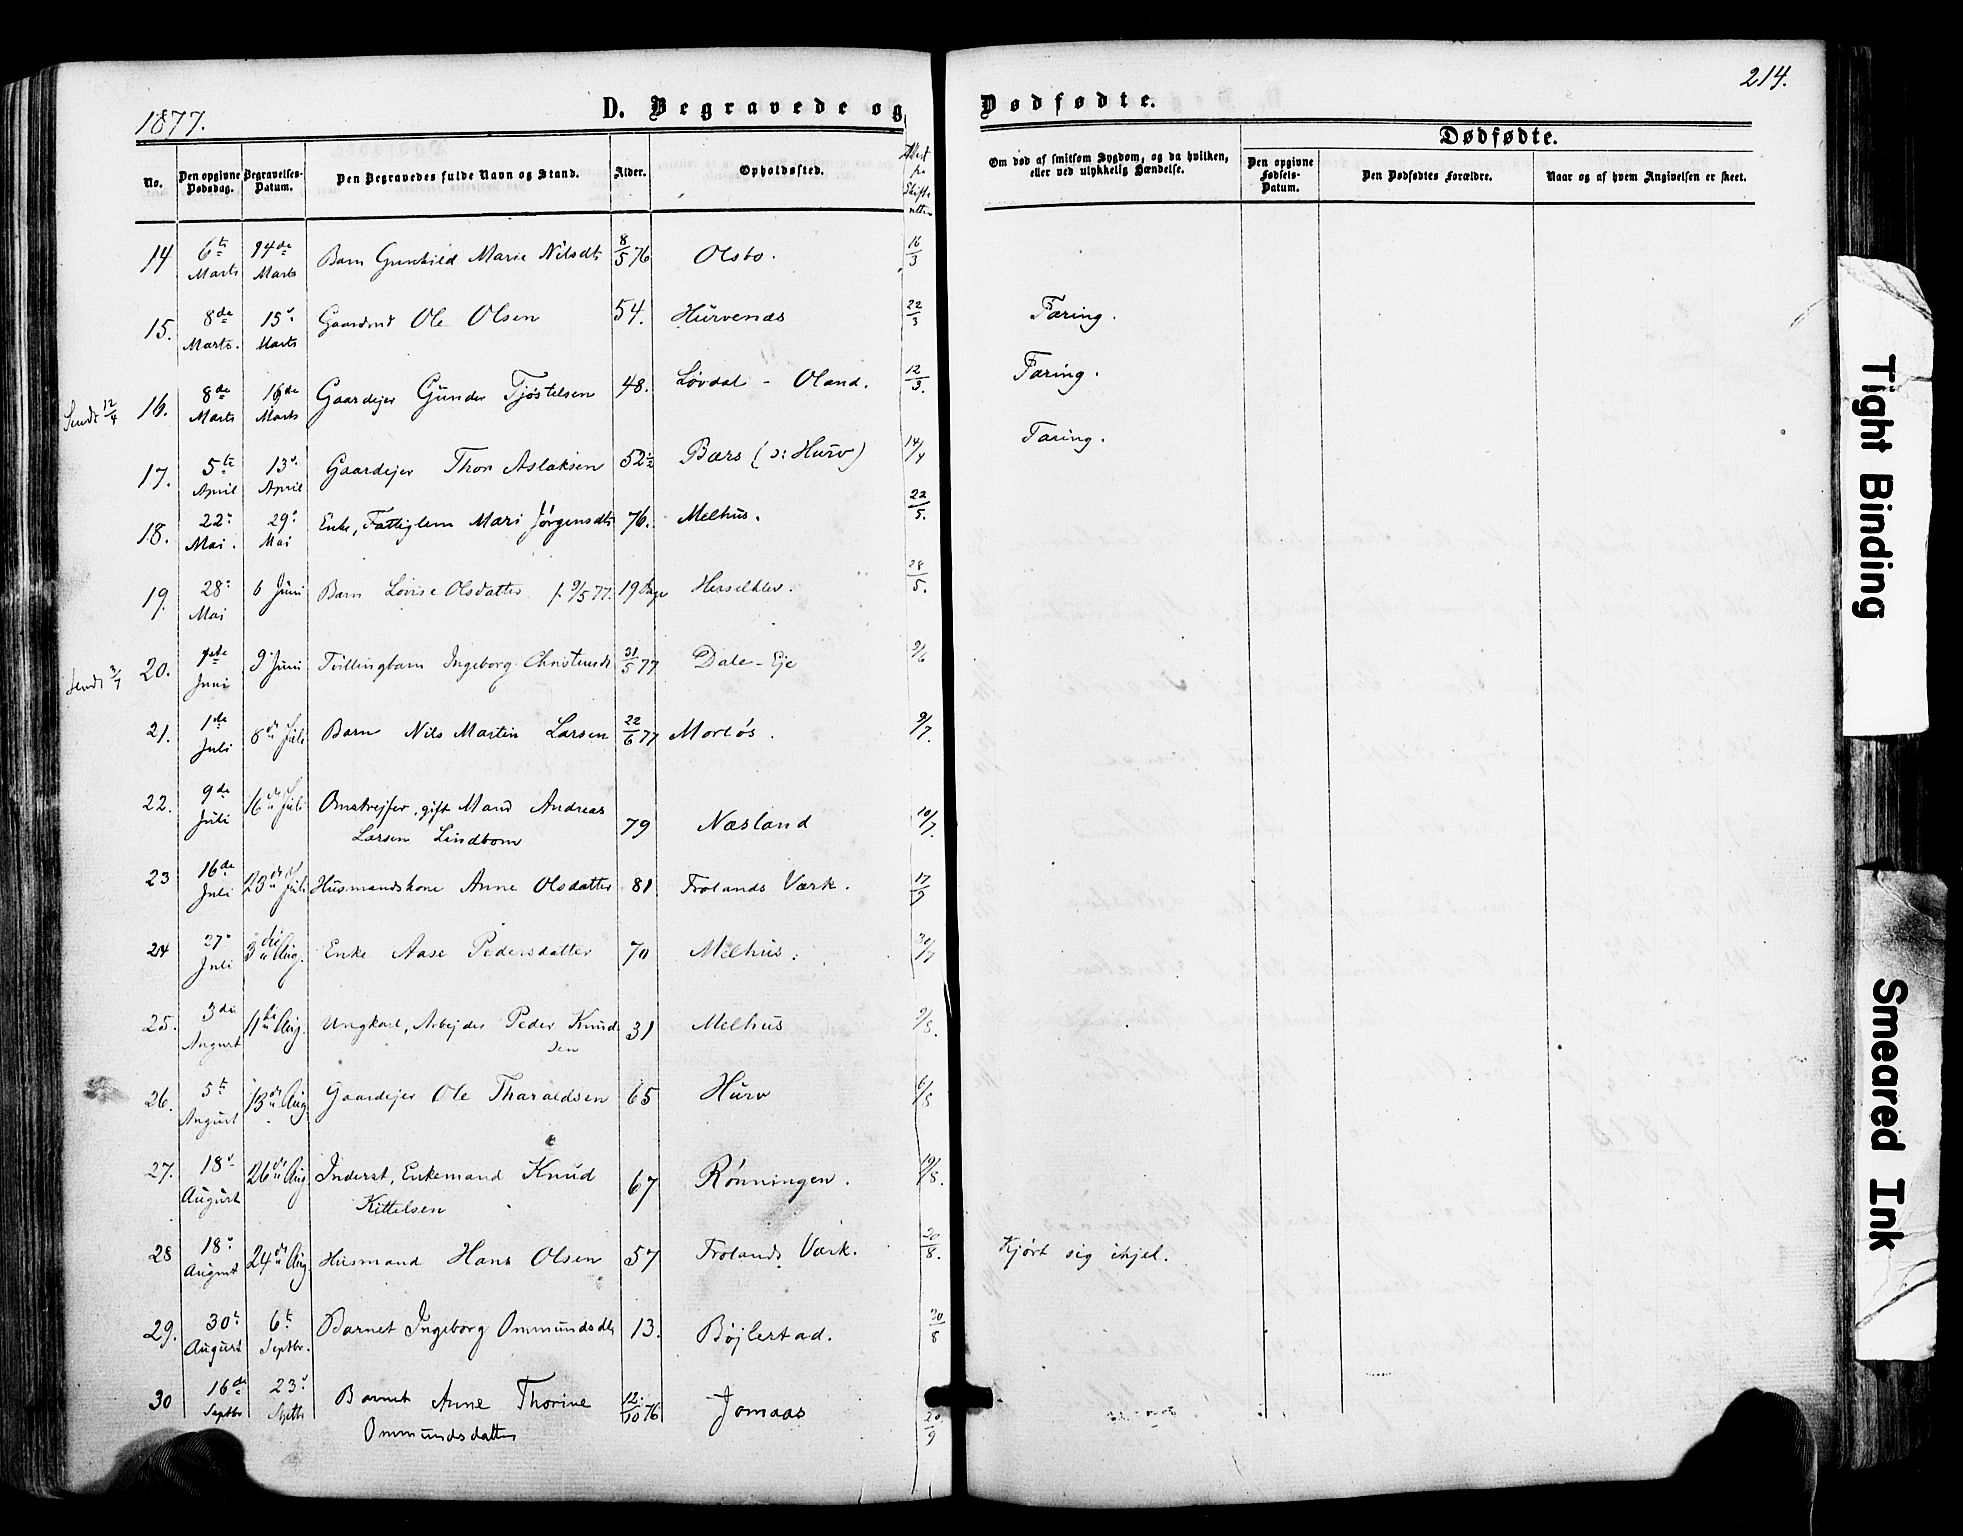 214.
1877.
D. Begravede og Dødfødte.
Dødfødte.
No.
Den opgivne Dødsdag.
Begravelses-Datum.
Den Begravedes fulde Navn og Stand.
Alder.
Opholdssted.
Om død af smitsom Sygdom, og da hvilken, eller ved ulykkelig Hændelse.
Den opgivne Fødsels-Datum.
Den Dødfødtes Forældre.
Naar og af hvem Angivelsen er skeet.
14 6te Marts 14de Marts Barn Gunhild Marie Nilsdt. 8/5 76 Olsbo. 16/3
15. 8de Marts. 15. Marts Gaardmd Ole Olsen 54. Hurvenæs 22/3 Tæring.
Sendt 12/4 16. 8de Marts 16de Marts Gaardejer Gunder Tjøstelsen 48. Løvdal - Oland. 12/3. Tæring.
17. 5te April 13. April Gaardejer Thor Aslaksen 52½ Bærs (ɔ: Hurv) 14/4 Tæring.
18. 22. Mai. 29. Mai Enke, Fattiglem Mari Jørgensdt. 76. Melhus. 22/5.
19. 28. Mai 6 Juni Barn Lovise Olsdatter f. 9/5 77. 19 Dage Herselhlev. 28/5.
Sendt 3/7 20. Juni 9. Juni Tvillingbarn Ingeborg 31/5 77 Dale-Eje 9/6
21. 1de Juli 8de Juli Barn Nils Martin Larsen 22/6 77 Mortøs. 9/7.
22. 9de Juli 16de Juli Omstrejfer, gift Mand Andreas
Larsen Lindbom 79 Næsland 10/7.
23 16de Juli 23de Juli Husmandskone Anne Olsdatter 81 Frolands Værk. 17/7
24 27. Juli 3die Aug. Enke Aase Pedersdatter 70 Melhus. 30/7
25. 3die August 11te Aug. Ungkarl, Arbejder Peder Knud-
sen 31 Melhus 9/8.
26. 5te August 13de Aug Gaardejer Ole Tharaldsen 65 Hurv 6/8
27. 18. August 26de Aug Inderst, Enkemand Knud
Kittelsen 67 Rønningen. 19/8.
28 18. August 24de Aug Husmand Hans Olsen 57 Frolands Værk. 20/8. Kjørt sig ihjel.
29. 30te August 6te Septbr. Barnet Ingeborg Ommundsdt. 13. Bøjlestad. 30/8
30 16de Septbr 23. Septbr Barnet Anne Thorine
Ommundsdatter 12/10 76 Jomaas 20/9
Tight Binding
Smeared Ink